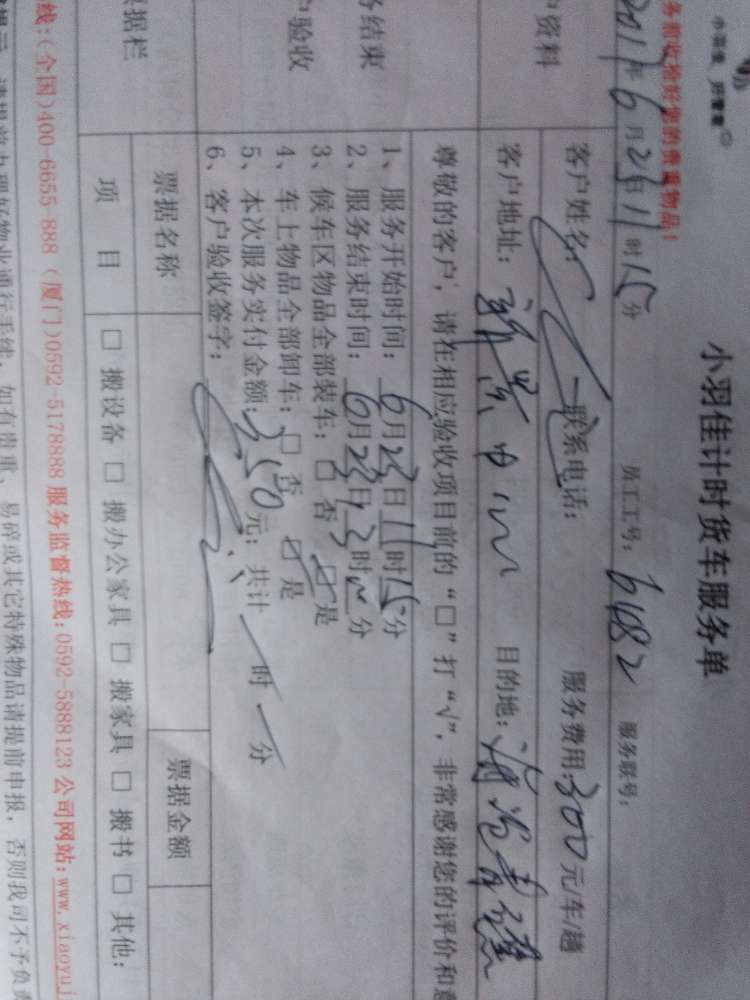 小羽佳计时货车服务单
务前收捡好您的贵重物品！
2017年6月23日11时15分 员工工号：6482 服务联号：
户资料
客户姓名： 联系电话： 服务费用：300元/车/趟
客户地址： 目的地：
尊敬的客户，请在相应验收项目前的“□”打“√”，非常感谢您的评价和意
务结束
户验收
1、服务开始时间：6月23日11时15分
2、服务结束时间：6月23日13时分
3、候车区物品全部装车：□ 否 ☑ 是
4、车上物品全部卸车：□ 否 ☑ 是
5、本次服务实付金额：350元；共计 时 分
6、客户验收签字：
票据栏
票据名称 票据金额
项 目 □ 搬设备 □ 搬办公家具 □ 搬家具 □ 搬书 □ 其他：
线：(全国)400-6655-888 (厦门)0592-5178888 服务监督热线：0592-5888123 公司网站：www.xiaoyuj
请提前办理好物业通行手续，如有贵重、易碎或其它特殊物品请提前申报，否则我司不予负责